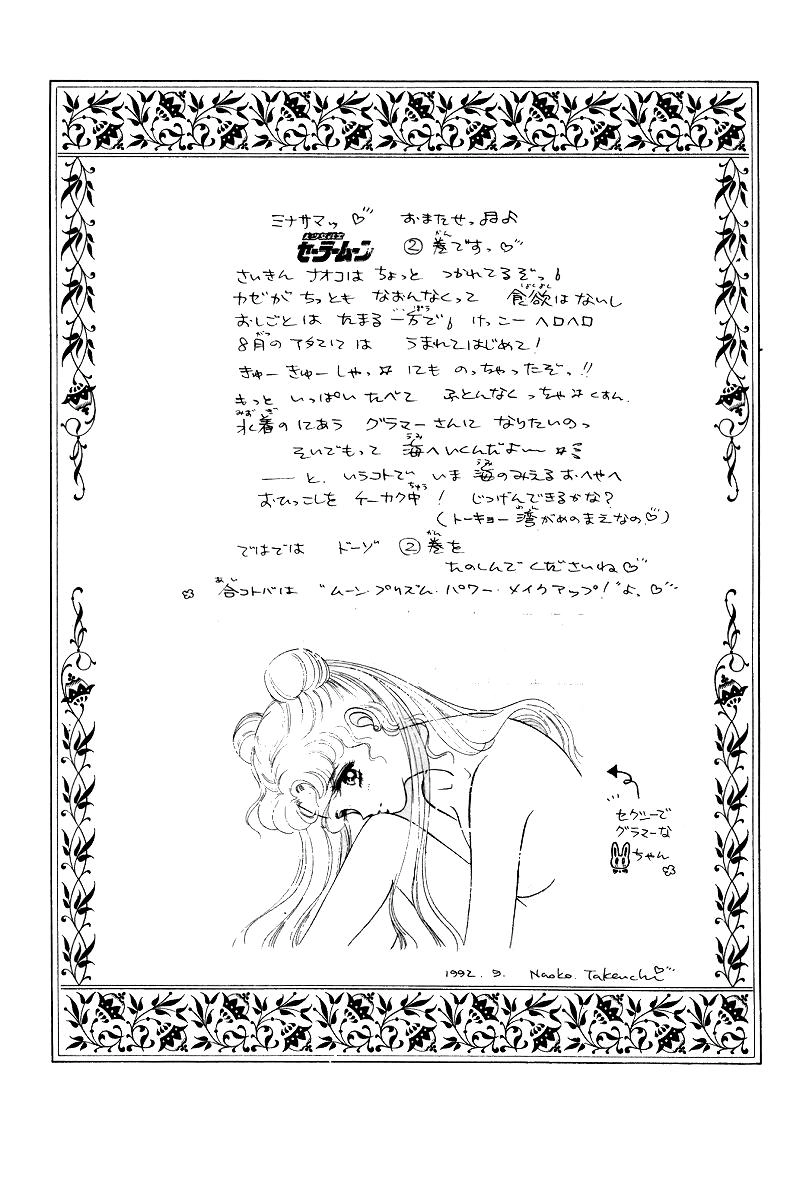 ミナサマッ♡ おまたせっ♫♪
美少女戦士
セーラームーン ②巻ですっ♡
さいきん ナオコは ちょっと つかれてるぞっ
カゼが ちっとも なおんなくって 食欲はないし
おしごとは たまる一方で けっこー ヘロヘロ
8月のアタマには うまれてはじめて!
きゅーきゅーしゃっ☆にも のっちゃったぞっ!!
もっと いっぱい たべて ふとんなくっちゃ☆くすん
水着の にあう グラマーさんに なりたいのっ
そいでもって 海へいくんだよ〜☆
——と、いうコトで いま 海のみえるおへやへ
おひっこしを ケーカク中! じつげんできるかな?
(トーキョー湾がめのまえなの♡)
ではでは ドーゾ ②巻を
たのしんでくださいね♡
合コトバは "ムーン・プリズム・パワー・メイクアップ!"よ、♡
セクシーで
グラマーな
ちゃん
1992. 9. Naoko. Takeuchi♡